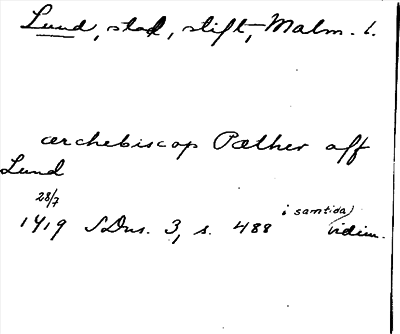 Lund, stad, stift, Malm. l.
ærchebiscop Pæther aff
Lund
28/7
1419 SDns. 3, s. 488 i samtida) vidim.